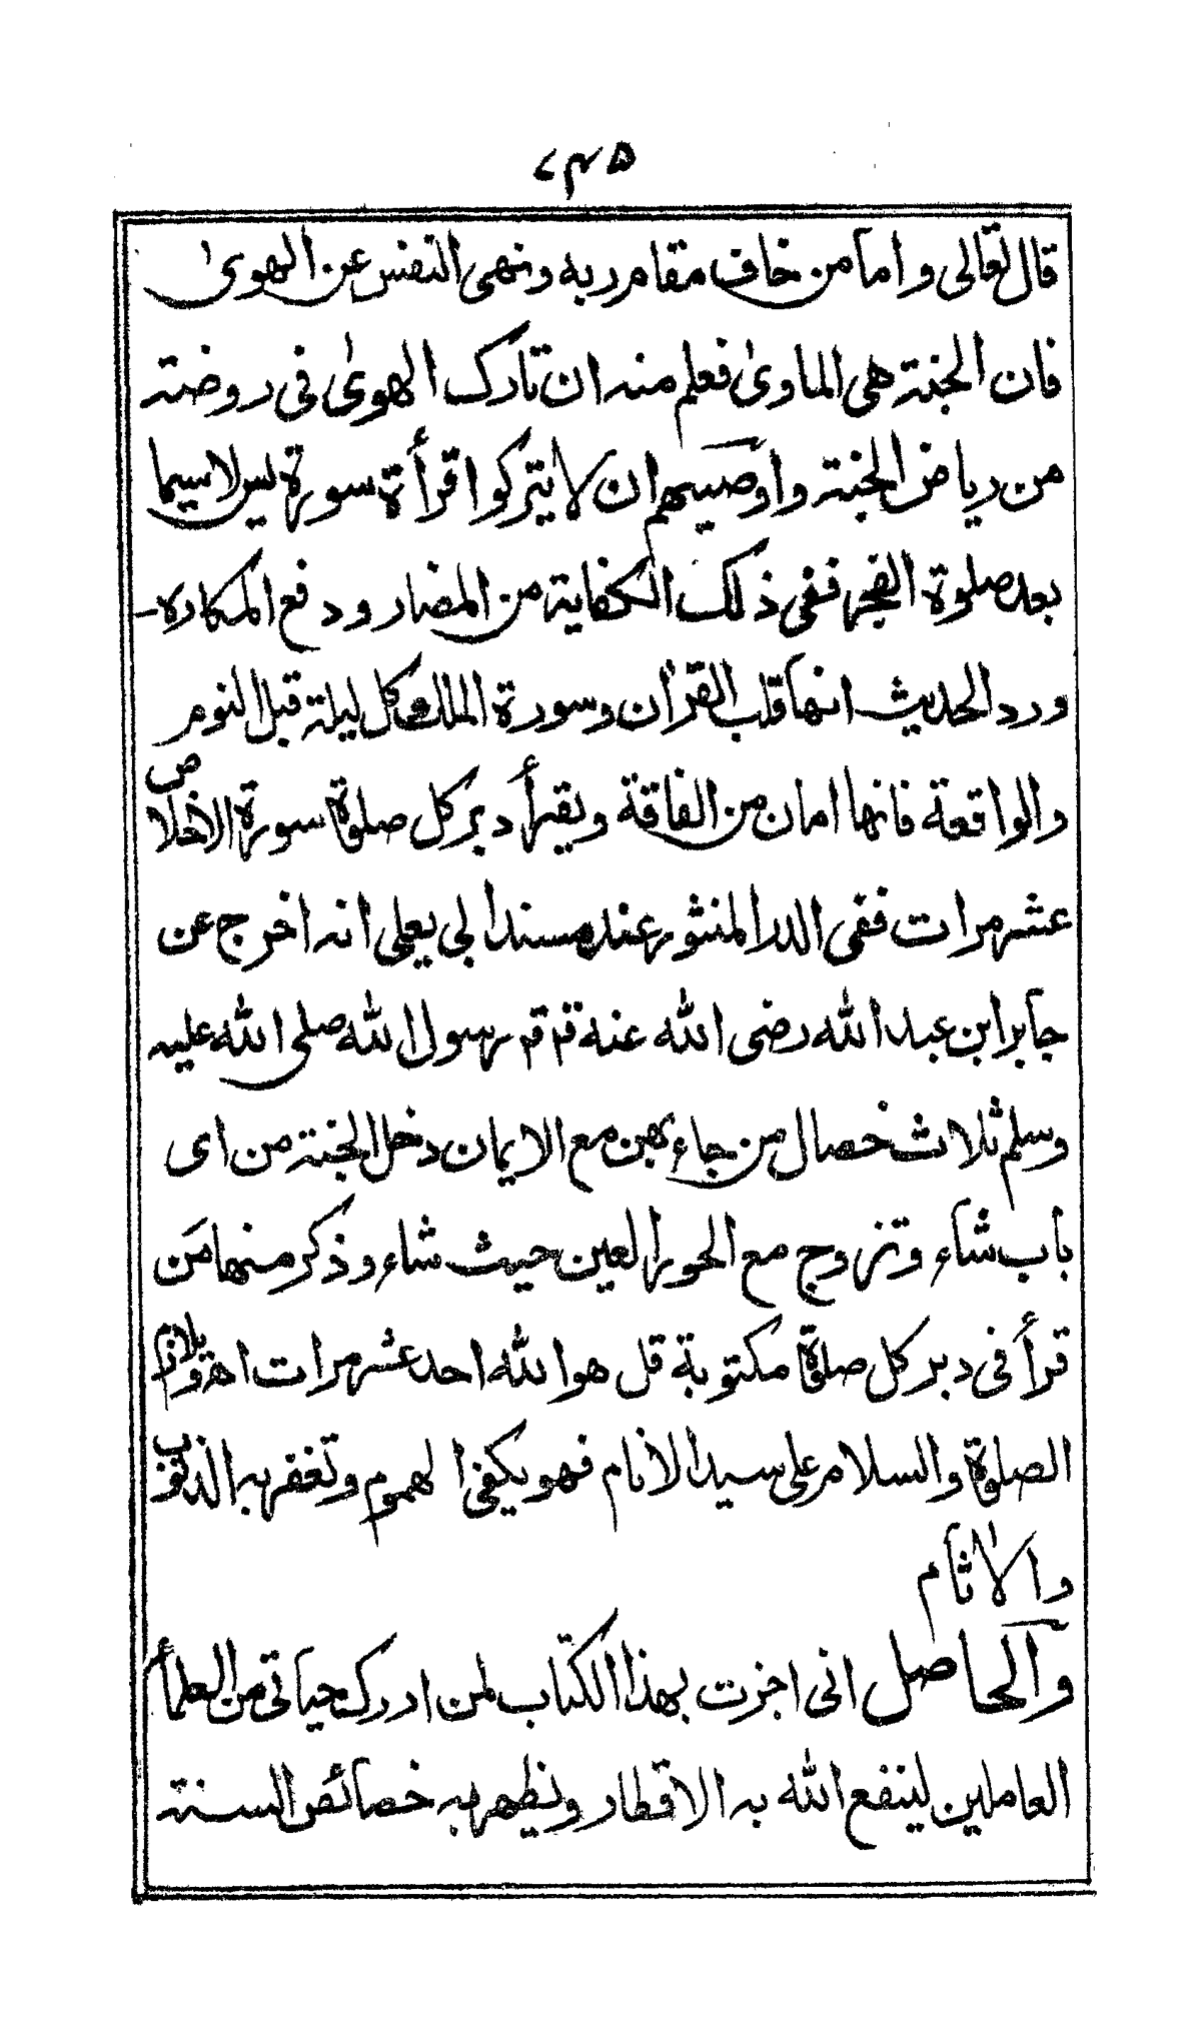 قال تعالى واما من خاف مقام ربه ونهى النفس عن الهوىٰ
فان الجنة هى الماوىٰ فعلم منه ان تارك الهوىٰ فى روضة
من رياض الجنة واوصيهم ان لا يتركوا قرأة سورة يس لا سيما
بعد صلوة الفجر ففى ذلك الكفاية من المضار ودفع المكاره-
ورد الحديث انها قلب القرأن وسورة الملك كل ليلة قبل النوم
والواقعة فانها امان من الفاقة ويقرأ دبر كل صلوة سورة الاخلاص
عشر مرات ففى الدر المنثور عند مسند ابى يعلى انه اخرج عن
جابر ابن عبد الله رضى الله عنه قم قم رسول الله صلى الله عليه
وسلم ثلاث خصال من جاء بهن مع الايمان دخل الجنة من اى
باب شاء وتزوج مع الحور العين حيث شاء وذكر منها من
قرأ فى دبر كل صلوة مكتوبة قل هو الله احد عشر مرات اھ ويلازم
الصلوة والسلام على سيد الانام فهو يكفى الهموم وتغفر به الذنوب
والاٰثام
والحاصل انى اجزت بهذا الكتاب لمن ادرك حياتى من العلمأ
العاملين لينفع الله به الاقطار ويظهر به خصائص السنة